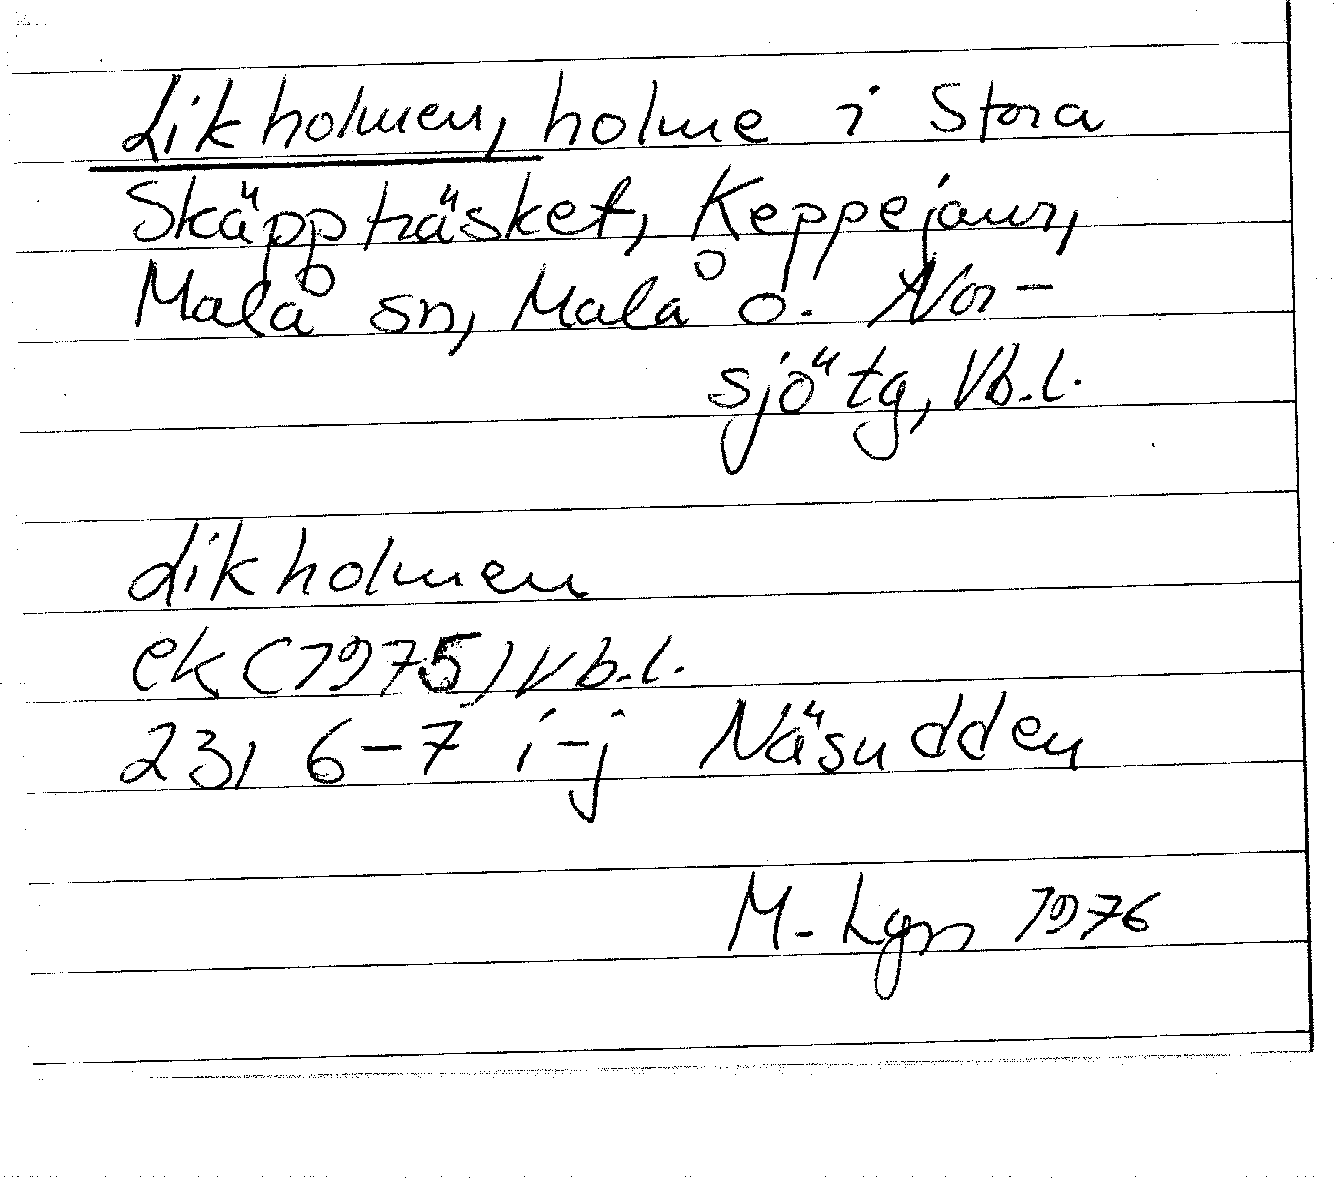 Likholmen, holme i Stora
Skäppträsket, Keppejaur,
Malå sn, Malå o. Nor-
sjö tg, Vb.l.
Likholmen
ek (1975) Vb.l.
23, 6-7 i-j Näsudden
M. Lgn 1976